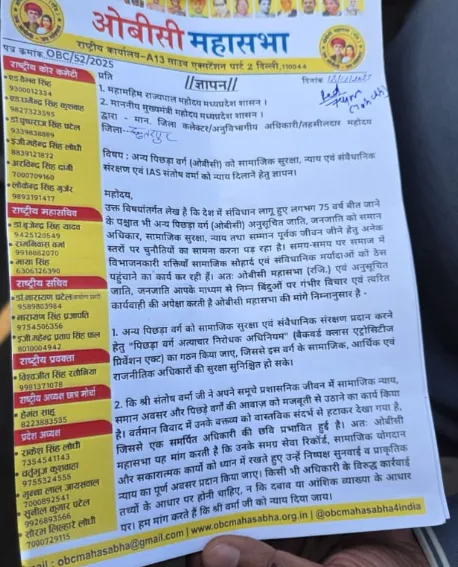 ओबीसी महासभा
राष्ट्रीय कार्यालय-A13 साउथ एक्सटेंशन पार्ट 2 दिल्ली,110044
पत्र क्रमांक OBC/52/2025
दिनांक
राष्ट्रीय कोर कमेटी
9300012334
9827323595
9339838889
8839121872
7000709160
लोकेन्द्र सिंह गुर्जर
9893191477
राष्ट्रीय महासचिव
9425120549
रामनिवास वर्मा
9918882070
माया सिंह
6306126390
राष्ट्रीय सचिव
डा.नारायण पटेल
9589803984
नारायण सिंह प्रजापति
9754506356
8010004942
राष्ट्रीय प्रवक्ता
9981371078
राष्ट्रीय अध्यक्ष छात्र मोर्चा
हेमंत साहू
8223883535
प्रदेश अध्यक्ष
राकेश सिंह लोधी
7354541143
9755324555
मुन्ना लाल जायसवाल
7000892541
सुनील कुमार पटेल
9926893566
7000729115
//ज्ञापन//
प्रति
1. महामहिम राज्यपाल महोदय मध्यप्रदेश शासन ।
2. माननीय मुख्यमंत्री महोदय मध्यप्रदेश शासन ।
द्वारा - मान. जिला कलेक्टर/अनुविभागीय अधिकारी/तहसीलदार महोदय
जिला-
विषय : अन्य पिछड़ा वर्ग (ओबीसी) को सामाजिक सुरक्षा, न्याय एवं संवैधानिक
संरक्षण एवं IAS संतोष वर्मा को न्याय दिलाने हेतु ज्ञापन।
महोदय,
उक्त विषयांतर्गत लेख है कि देश में संविधान लागू हुए लगभग 75 वर्ष बीत जाने
के पश्चात भी अन्य पिछड़ा वर्ग (ओबीसी) अनुसूचित जाति, जनजाति को समान
अधिकार, सामाजिक सुरक्षा, न्याय तथा सम्मान पूर्वक जीवन जीने हेतु अनेक
स्तरों पर चुनौतियों का सामना करना पड़ रहा है। समय-समय पर समाज में
विभाजनकारी शक्तियाँ सामाजिक सौहार्द एवं संवैधानिक मर्यादाओं को ठेस
पहुंचाने का कार्य कर रही हैं। अतः ओबीसी महासभा (रजि.) एवं अनुसूचित
जाति, जनजाति आपके माध्यम से निम्न बिंदुओं पर गंभीर विचार एवं त्वरित
कार्यवाही की अपेक्षा करती है ओबीसी महासभा की मांगे निम्नानुसार है -
1. अन्य पिछड़ा वर्ग को सामाजिक सुरक्षा एवं संवैधानिक संरक्षण प्रदान करने
हेतु "पिछड़ा वर्ग अत्याचार निरोधक अधिनियम" (बैकवर्ड क्लास एट्रोसिटीज
प्रिवेंशन एक्ट) का गठन किया जाए, जिससे इस वर्ग के सामाजिक, आर्थिक एवं
राजनीतिक अधिकारों की सुरक्षा सुनिश्चित हो सके।
2. कि श्री संतोष वर्मा जी ने अपने समूचे प्रशासनिक जीवन में सामाजिक न्याय,
समान अवसर और पिछड़े वर्गों की आवाज़ को मजबूती से उठाने का कार्य किया
है। वर्तमान विवाद में उनके वक्तव्य को वास्तविक संदर्भ से हटाकर देखा गया है,
जिससे एक समर्पित अधिकारी की छवि प्रभावित हुई है। अतः ओबीसी
महासभा यह मांग करती है कि उनके समग्र सेवा रिकॉर्ड, सामाजिक योगदान
और सकारात्मक कार्यों को ध्यान में रखते हुए उन्हें निष्पक्ष सुनवाई व प्राकृतिक
न्याय का पूर्ण अवसर प्रदान किया जाए। किसी भी अधिकारी के विरुद्ध कार्रवाई
तथ्यों के आधार पर होनी चाहिए, न कि दबाव या आंशिक व्याख्या के आधार
पर। हम मांग करते हैं कि श्री वर्मा जी को न्याय दिया जाय।
mail : obcmahasabha@gmail.com | www.obcmahasabha.org.in | @obcmahasabha4india